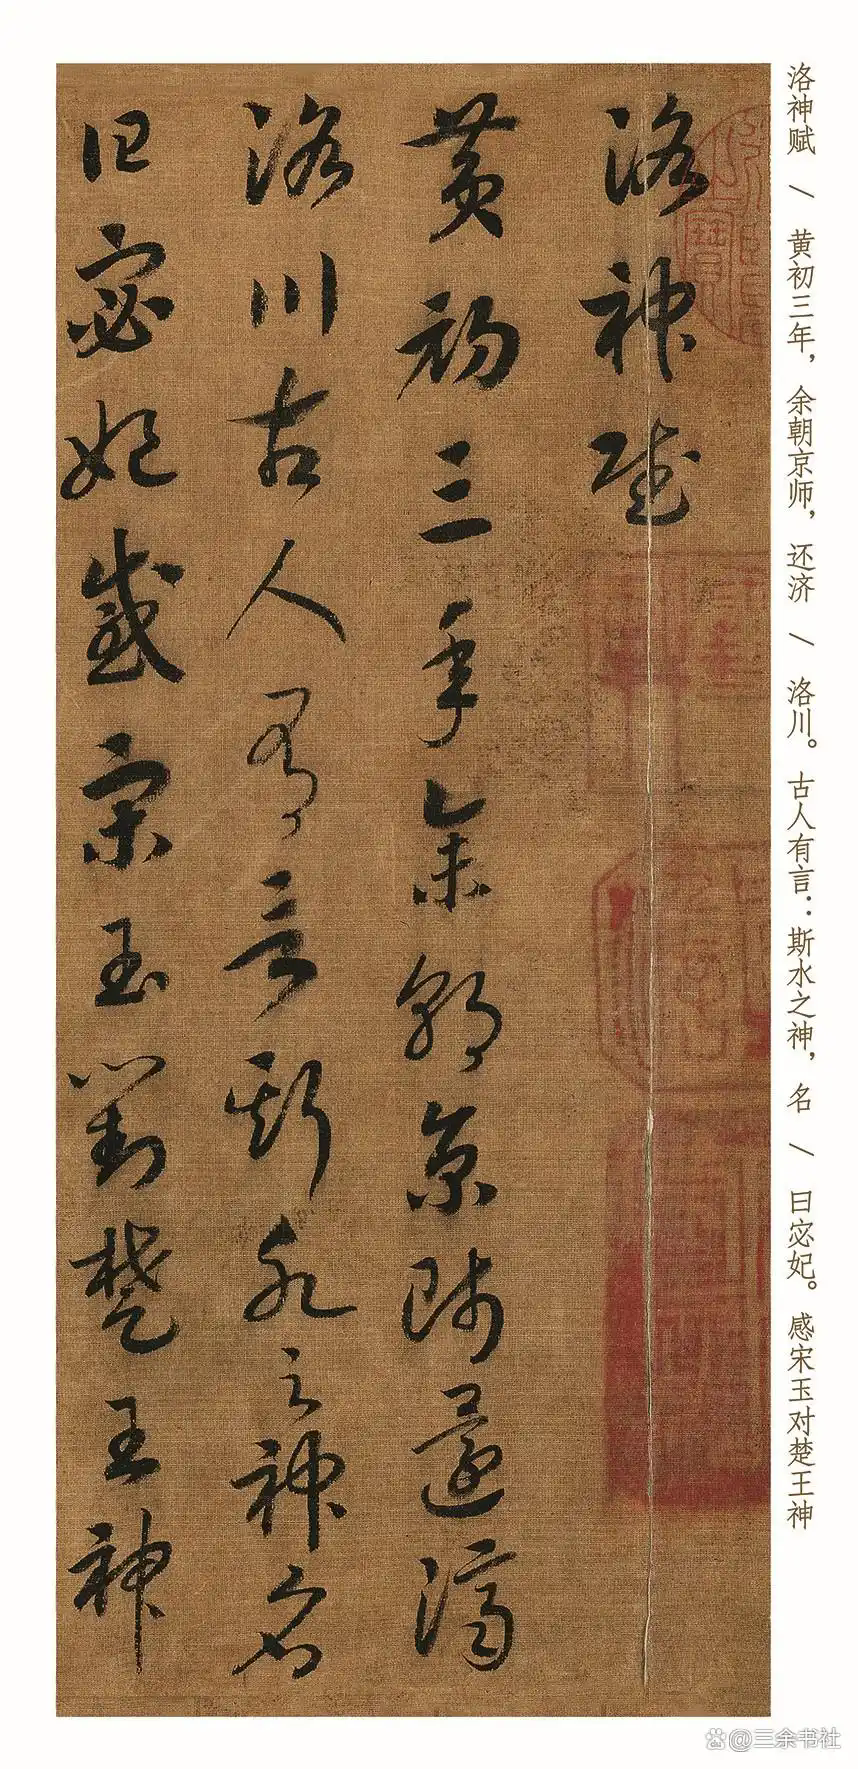 洛神赋 / 黄初三年，余朝京师，还济 / 洛川。古人有言：斯水之神，名 / 曰宓妃。感宋玉对楚王神
洛神賦
黄初三年余朝京師還濟
洛川古人有言斯水之神名
曰宓妃感宋玉對楚王神
@三余书社